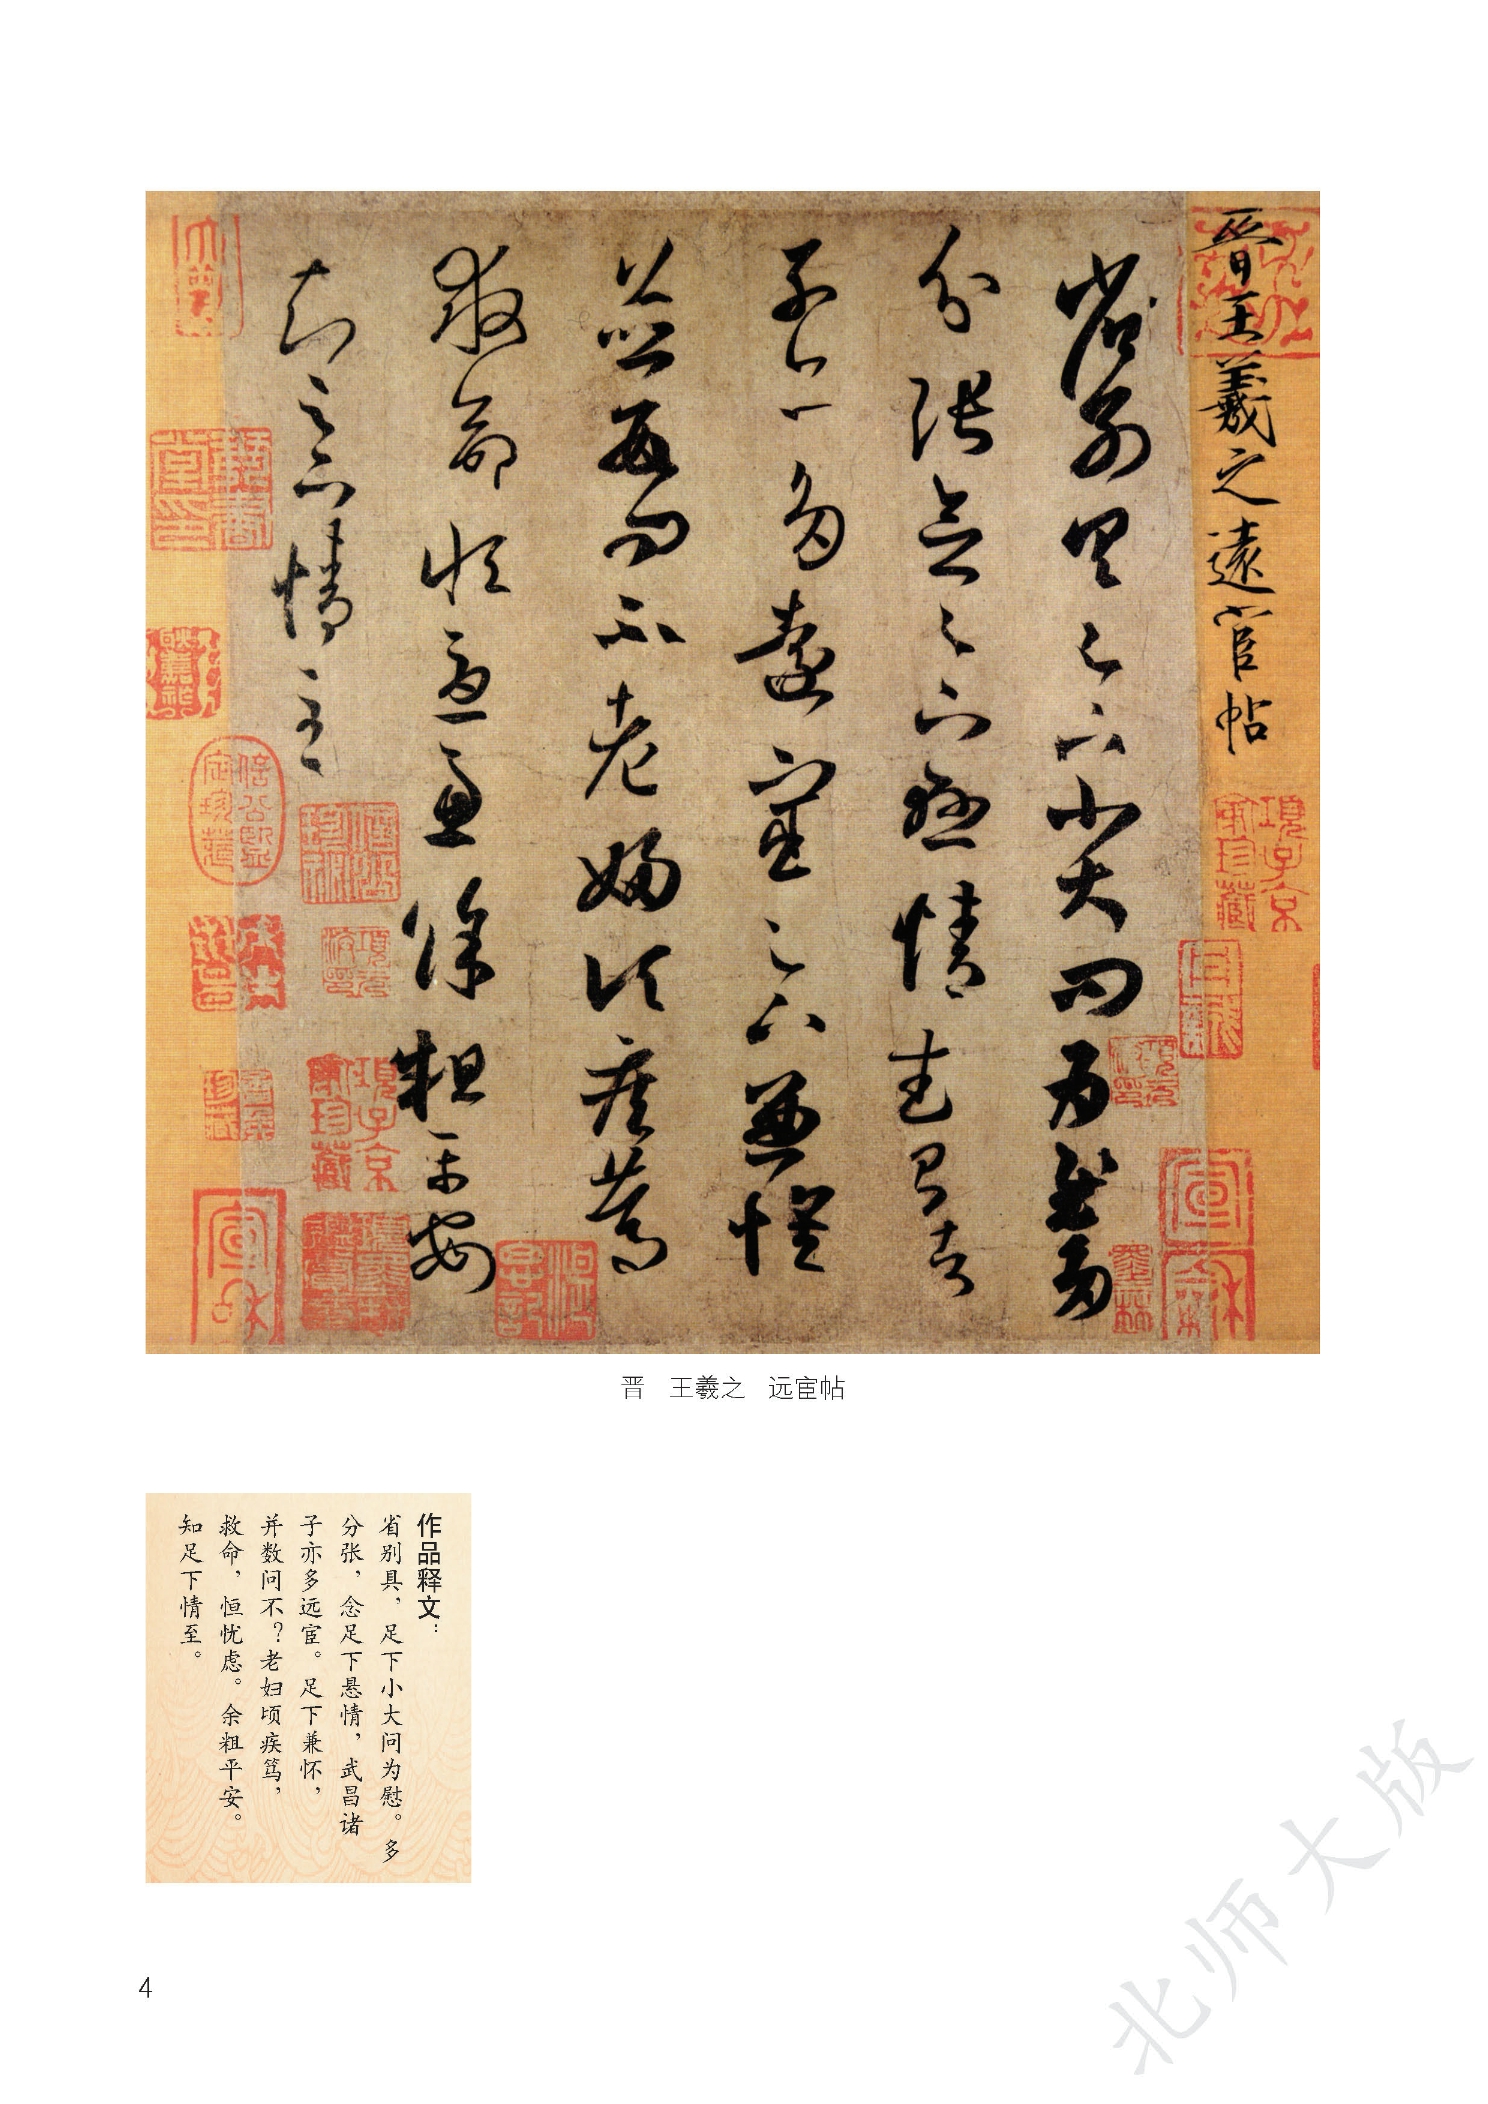 晋王羲之遠宦帖
省别具足下小大问为慰多
分张念足下悬情武昌诸
子亦多远宦足下兼怀
并数问不老妇顷疾笃
救命恒忧虑余粗平安
知足下情至
項子京家珍藏
項子京家珍藏
晋 王羲之 远宦帖
作品释文：
省别具，足下小大问为慰。多
分张，念足下悬情，武昌诸
子亦多远宦。足下兼怀，
并数问不？老妇顷疾笃，
救命，恒忧虑。余粗平安。
知足下情至。
4
北师大版